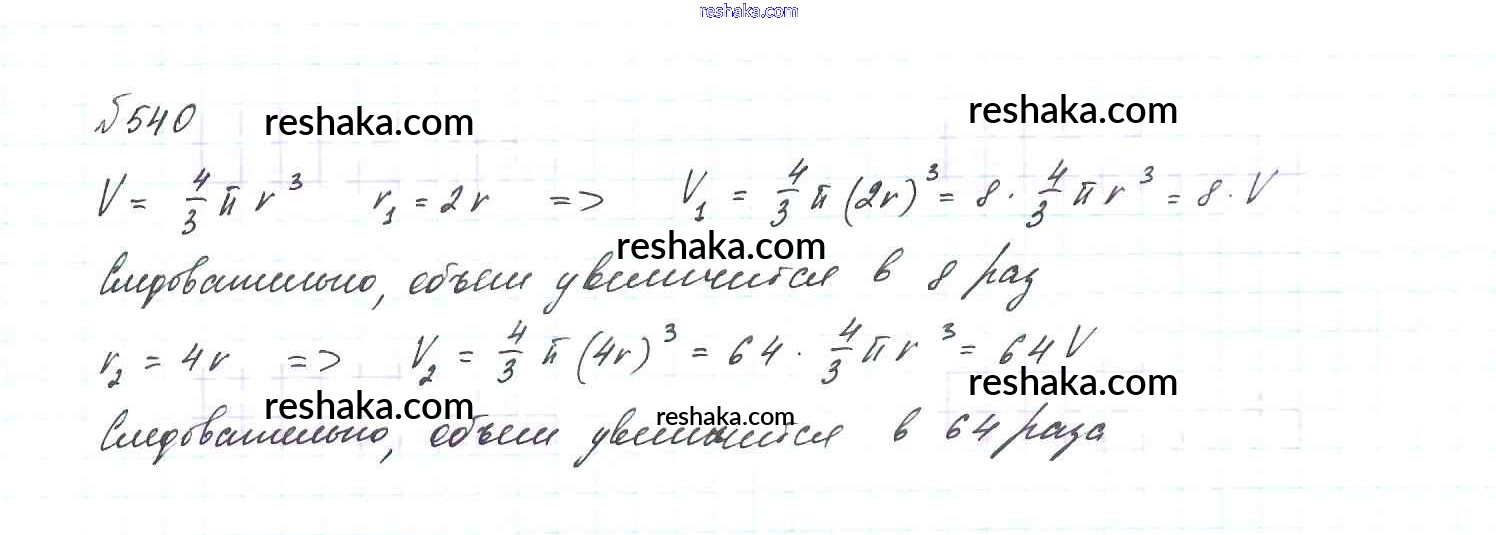 reshaka.com
№540 reshaka.com reshaka.com
V = 4/3 π r³ r₁ = 2r => V₁ = 4/3 π (2r)³ = 8 · 4/3 π r³ = 8 · V
reshaka.com
Следовательно, объем увеличится в 8 раз
r₂ = 4r => V₂ = 4/3 π (4r)³ = 64 · 4/3 π r³ = 64V
reshaka.com reshaka.com reshaka.com
Следовательно, объем увеличится в 64 раза